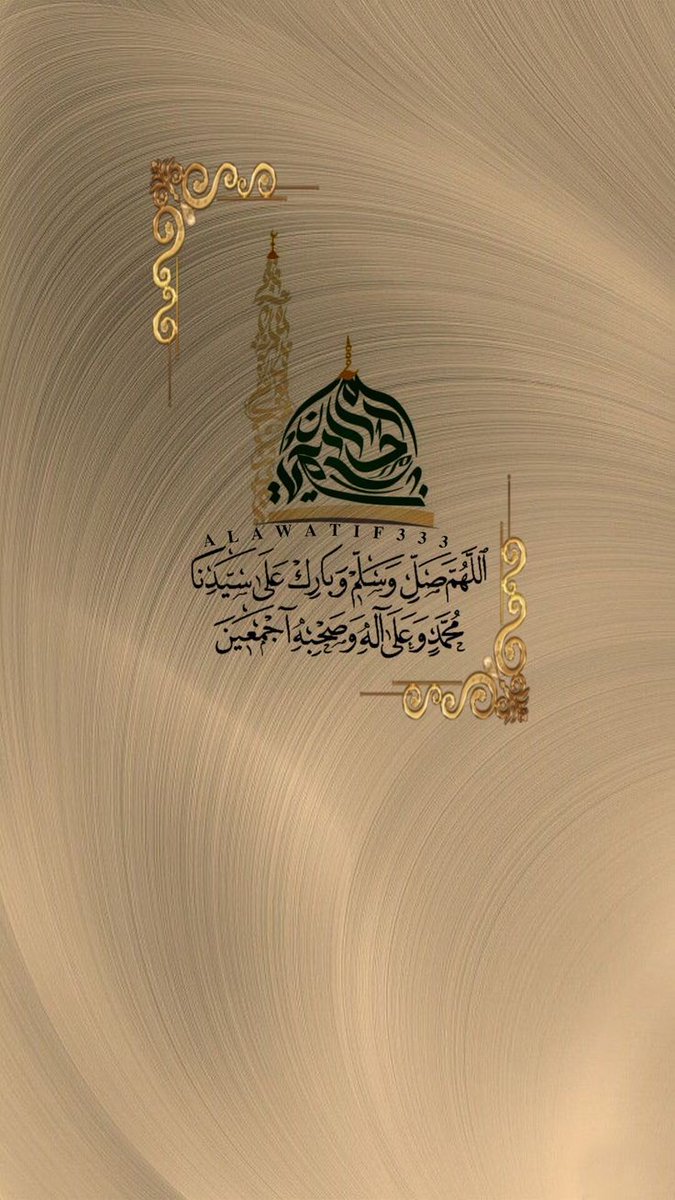 ALAWATIF333
اللَّهُمَّ صَلِّ وَسَلِّمْ وَبَارِكْ عَلَى سَيِّدِنَا
مُحَمَّدٍ وَعَلَى آلِهِ وَصَحْبِهِ أَجْمَعِينَ